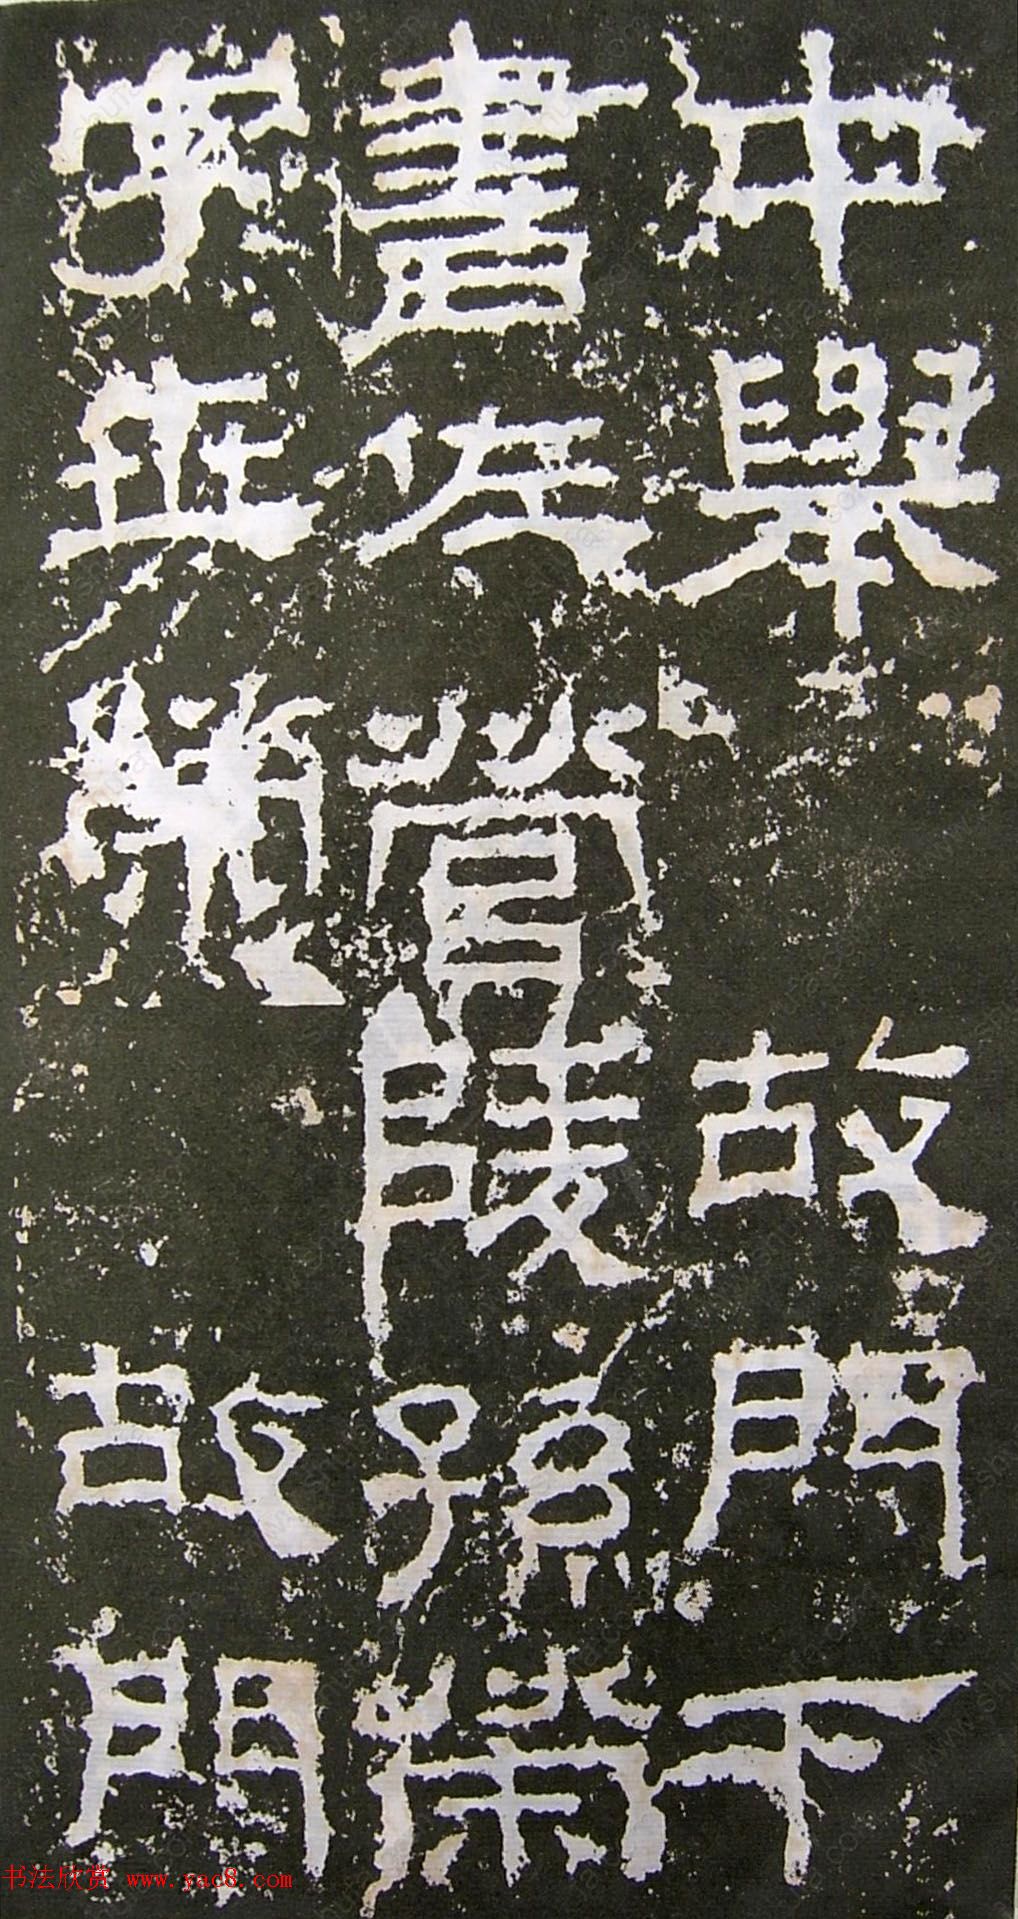 中舉故門下
書佐營陵孫榮
故門
書法欣赏 www.yac8.com